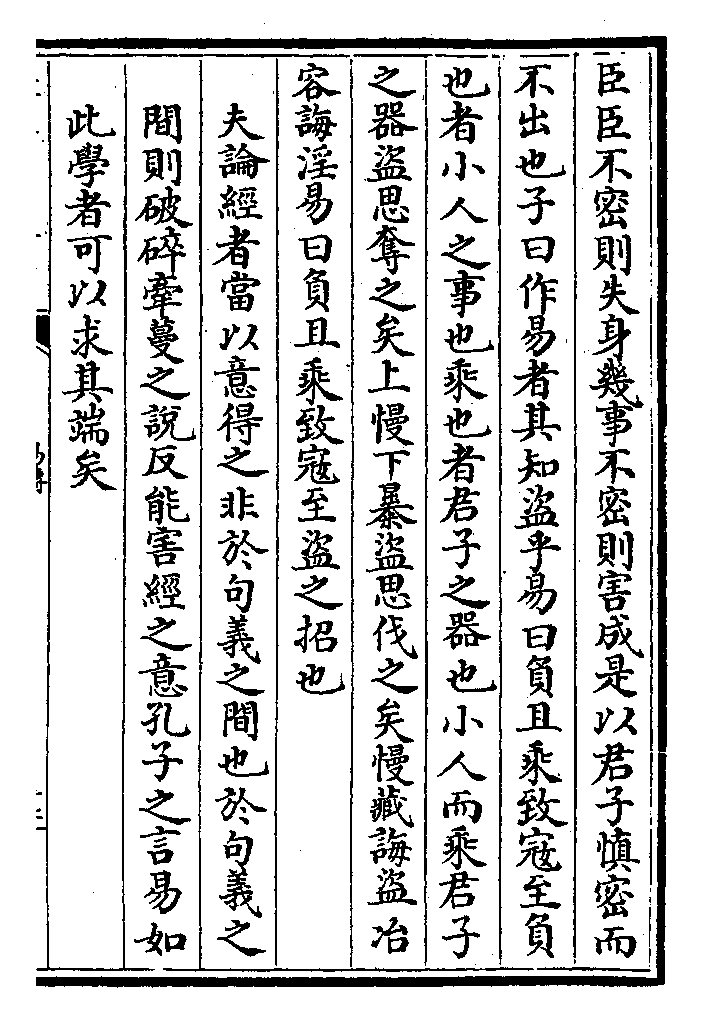 臣臣不密則失身幾事不密則害成是以君子慎密而
不出也子曰作易者其知盜乎易曰負且乘致寇至負
也者小人之事也乘也者君子之器也小人而乘君子
之器盜思奪之矣上慢下暴盜思伐之矣慢藏誨盜冶
容誨淫易曰負且乘致寇至盜之招也
夫論經者當以意得之非於句義之間也於句義之
間則破碎牽蔓之說反能害經之意孔子之言易如
此學者可以求其端矣